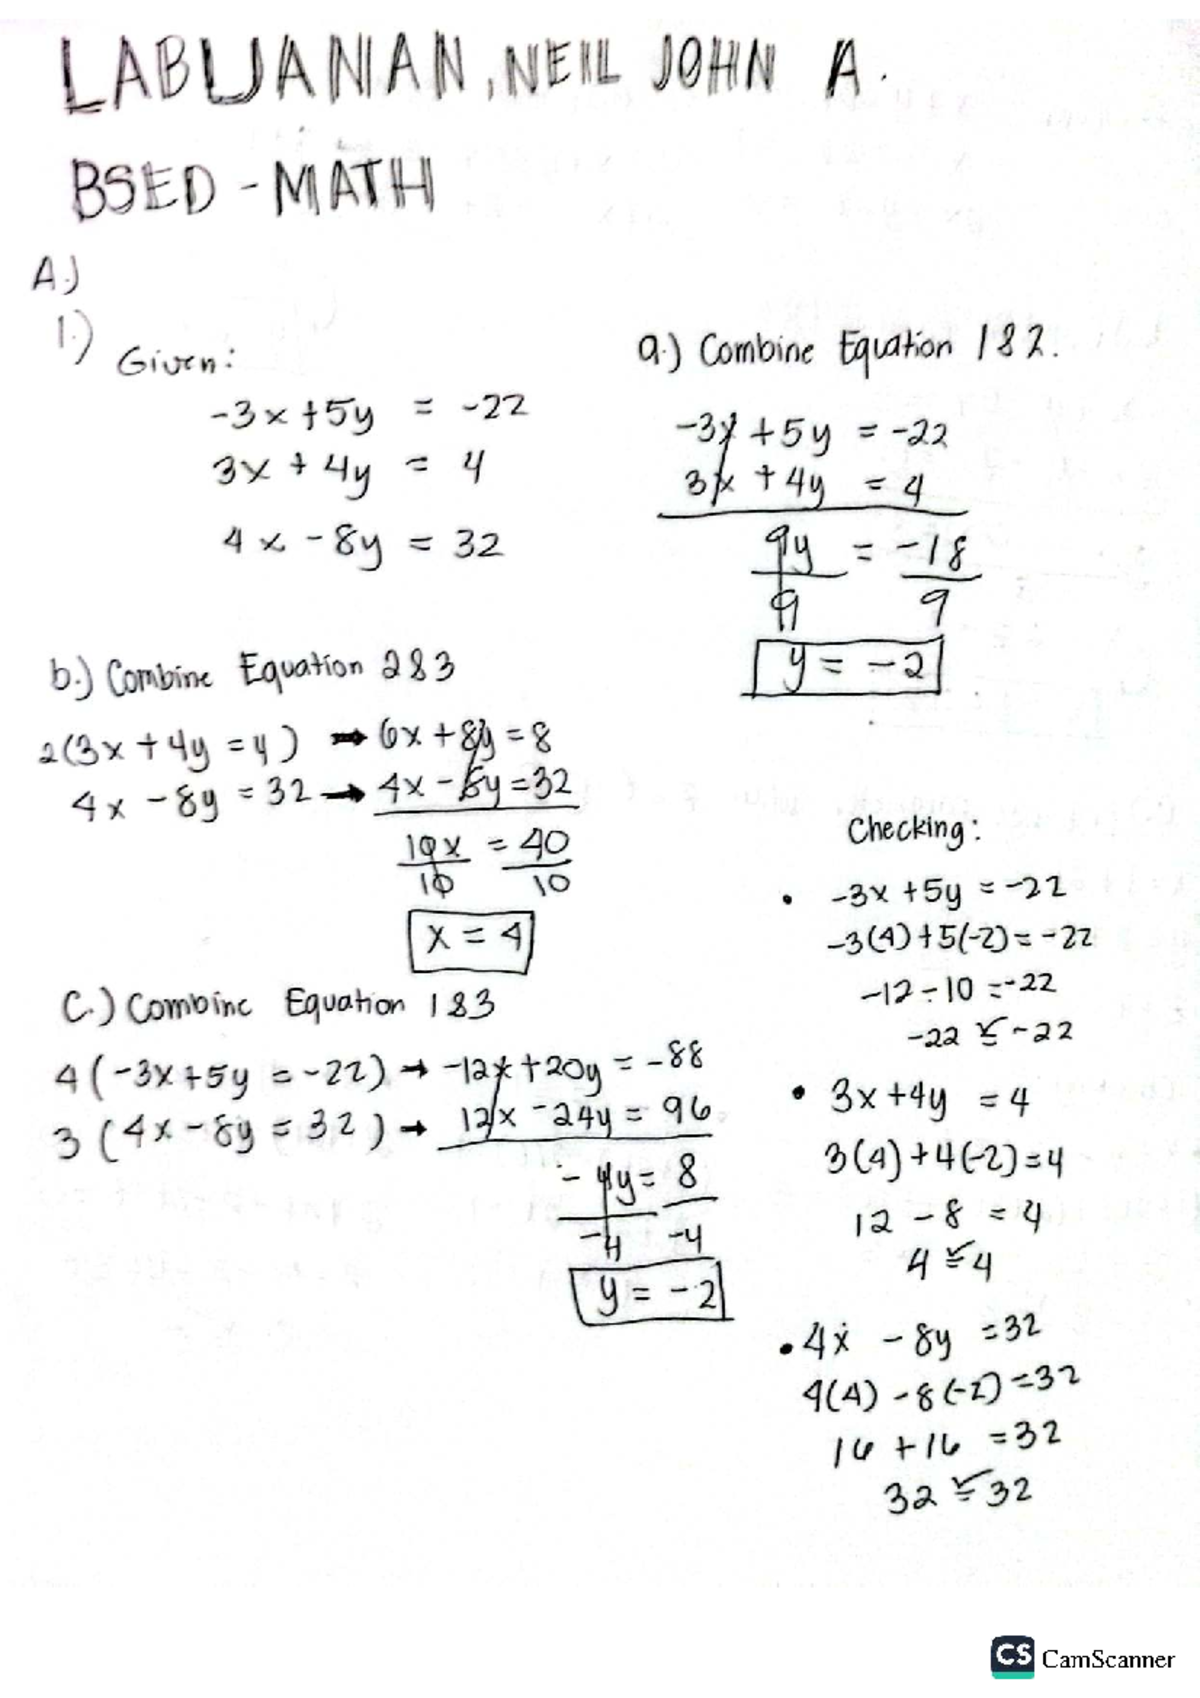 LABUANAN, NEIL JOHN A.
BSED - MATH
A.)
1.) Given:
-3x + 5y = -22
3x + 4y = 4
4x - 8y = 32
a.) Combine Equation 1 & 2.
-3x + 5y = -22
3x + 4y = 4
9y = -18
9 9
y = -2
b.) Combine Equation 2 & 3
2(3x + 4y = 4) → 6x + 8y = 8
4x - 8y = 32 → 4x - 8y = 32
10x = 40
10 10
x = 4
C.) Combine Equation 1 & 3
4(-3x + 5y = -22) → -12x + 20y = -88
3(4x - 8y = 32) → 12x - 24y = 96
-4y = 8
-4 -4
y = -2
Checking:
• -3x + 5y = -22
-3(4) + 5(-2) = -22
-12 - 10 = -22
-22 ≚ -22
• 3x + 4y = 4
3(4) + 4(-2) = 4
12 - 8 = 4
4 ≚ 4
• 4x - 8y = 32
4(4) - 8(-2) = 32
16 + 16 = 32
32 ≚ 32
CS CamScanner